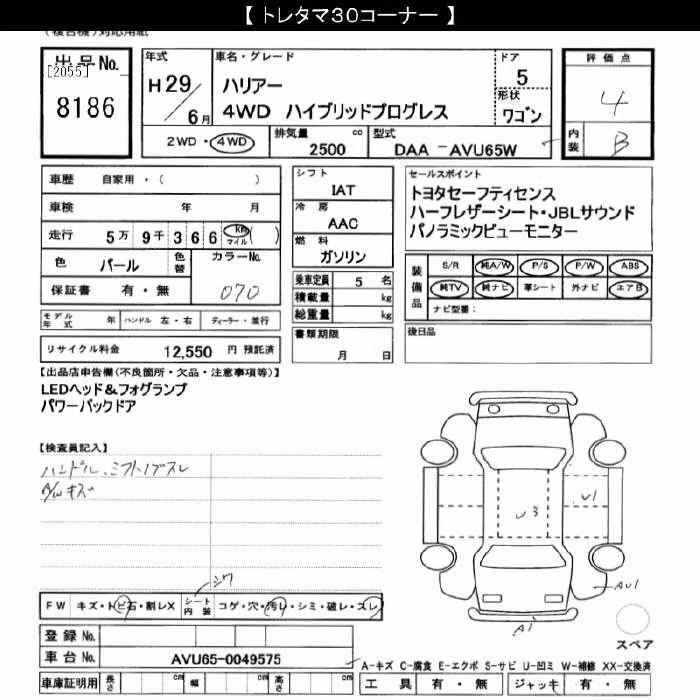 【 トレタマ30コーナー 】
(複合機)対応用紙
出品No.
[2055]
8186
年式
H29/6月
車名・グレード
ハリアー
4WD ハイブリッドプログレス
ドア
5
形状
ワゴン
評価点
4
内装
B
2WD・4WD
排気量
2500 cc
型式
DAA -AVU65W
車歴 自家用・( )
車検 年 月
走行 5万 9千 3 6 6 km マイル ( )
色 パール
色替
カラーNo.
070
保証書 有・無
モデル年式 年 ハンドル 左・右 ディーラー・並行
リサイクル料金 12,550 円 預託済
シフト
IAT
冷房
AAC
燃料
ガソリン
乗車定員 5 名
積載量 kg
総重量 kg
書類期限
月 日
セールスポイント
トヨタセーフティセンス
ハーフレザーシート・JBLサウンド
パノラミックビューモニター
装備品
S/R 純A/W P/S P/W ABS
純TV 純ナビ 革シート 外ナビ エアB
ナビ型番:
後日品
【出品店申告欄(不良箇所・欠品・注意事項等)】
LEDヘッド&フォグランプ
パワーバックドア
【検査員記入】
ハンドル、シフトノブスレ
A/Wキズ
U1
U3
AU1
A1
シワ
FW キズ・トビ石・割レX
シート内装 コゲ・穴・汚レ・シミ・破レ・スレ
登録No.
車台No. AVU65-0049575
スペア
A-キズ C-腐食 E-エクボ S-サビ U-凹ミ W-補修 XX-交換済
車庫証明用 長さ cm 幅 cm 高さ cm
工具 有・無 ジャッキ 有・無